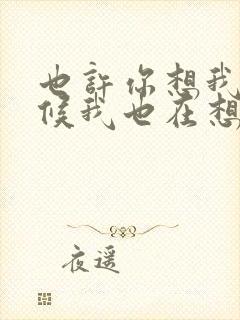 也許你想我
候我也在想
夜遥